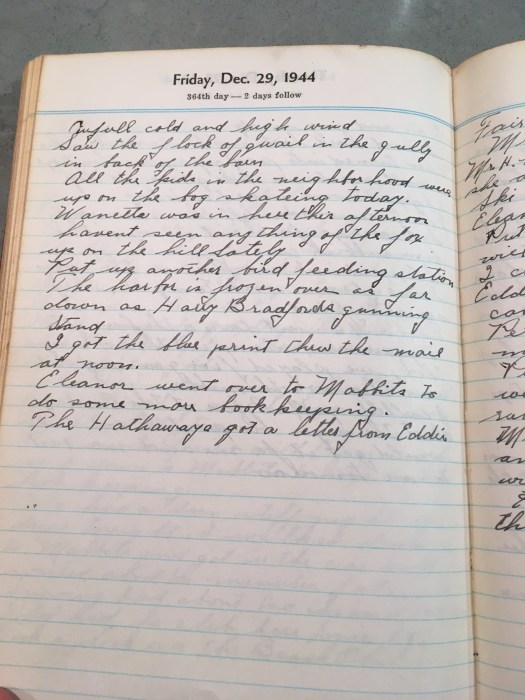 Friday, Dec. 29, 1944
364th day — 2 days follow
cold and high wind
Saw the flock of quail in the gully
in back of the barn
All the kids in the neighborhood were
up on the bog skateing today.
Wanette was in here this afternoon
havent seen anything of the fox
up on the hill lately
Put up another bird feeding station
The harbor is frozen over as far
down as Harry Bradfords gunning
stand
I got the blue print thru the mail
at noon.
Eleanor went over to Mabbits to
do some more bookkeeping.
The Hathaways got a letter from Eddie
Fair
M
Mr H.
she
Ski
Elean
Put
I c
Edd
ca
Pe
m
Th
we
M
an
w
E
th